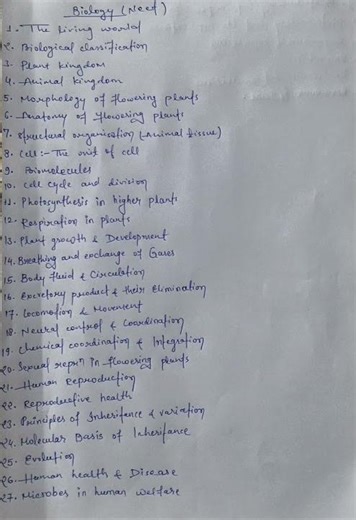 Biology (Neet)
1. The living world
2. Biological classification
3. Plant kingdom
4. Animal kingdom
5. Morphology of flowering plants
6. Anatomy of flowering plants
7. Structural organisation (Animal tissue)
8. Cell:- The unit of cell
9. Biomolecules
10. Cell cycle and division
11. Photosynthesis in higher plants
12. Respiration in plants
13. Plant growth & Development
14. Breathing and exchange of Gases
15. Body fluid & Circulation
16. Excretory product & their Elimination
17. Locomotion & Movement
18. Neural control & Coordination
19. Chemical coordination & Integration
20. Sexual repr in flowering plants
21. Human Reproduction
22. Reproductive health
23. Principles of Inheritance & variation
24. Molecular Basis of Inheritance
25. Evolution
26. Human health & Disease
27. Microbes in human welfare